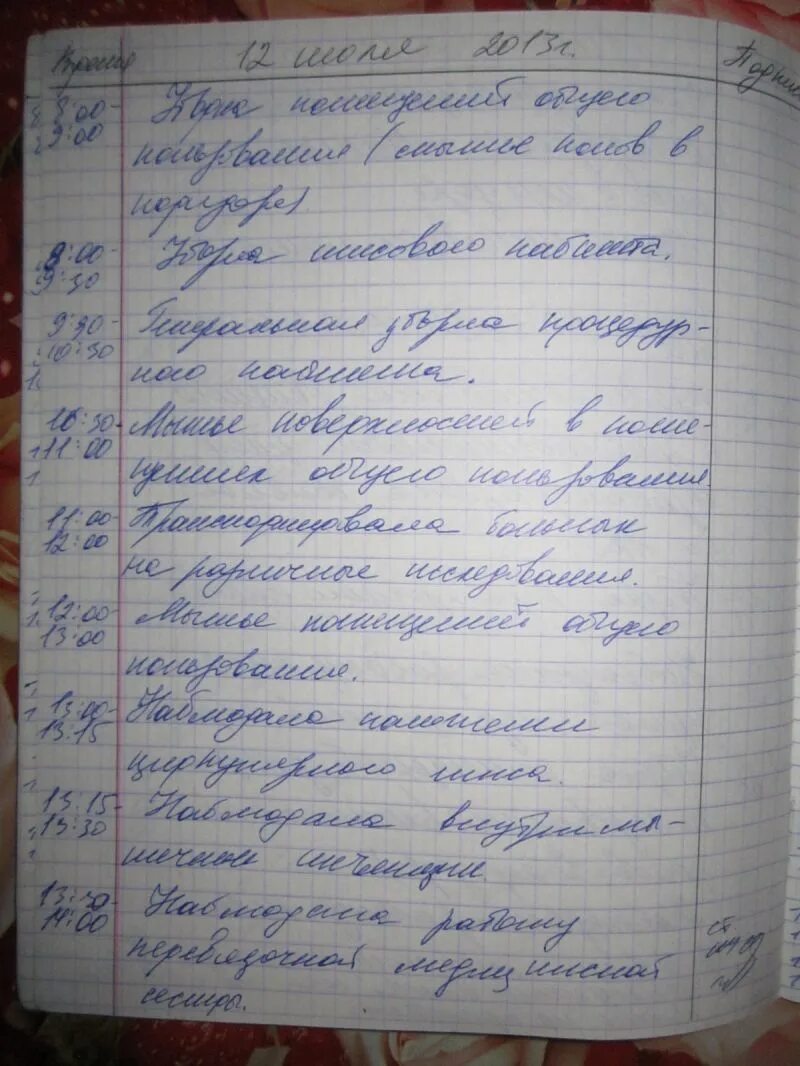 Время 12 июля 2013г. Подпись
8:00- Уборка помещений общего
9:00 пользования (мытьё полов в
коридоре)
9:00- Уборка гипсового кабинета.
9:30
9:30- Генеральная уборка процедур-
10:30 ного кабинета.
10:30- Мытьё поверхностей в поме-
11:00 щениях общего пользования
11:00- Транспортировала больных
12:00 на различные исследования.
12:00- Мытьё помещений общего
13:00 пользования.
13:00- Наблюдала наложение
13:15 циркулярного гипса.
13:15- Наблюдала внутримы-
13:30 шечные инъекции.
13:30- Наблюдала работу
14:00 перевязочной медицинской
сестры.
ст